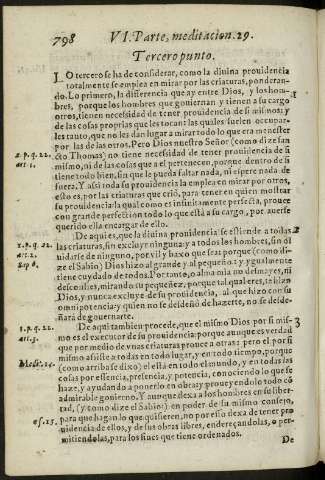 798 VI. Parte, meditacion. 29.
Tercero punto.
LO tercero se ha de considerar, como la diuina prouidencia
totalmente se emplea en mirar por las criaturas, ponderan-
do. Lo primero, la diferencia que ay entre Dios, y los hom-
bres, porque los hombres que gouiernan y tienen a su cargo
otros, tienen necessidad de tener prouidencia de si mismos, y
de las cosas proprias que les tocan: las quales suelen ocupar-
les tanto, que no les dan lugar a mirar todo lo que era menester
por las de los otros. Pero Dios nuestro Señor (como dize san
1. p. q. 22.
art. 1.
cto Thomas) no tiene necessidad de tener prouidencia de si
mismo, ni de las cosas que a el pertenecen, porque dentro de si
tiene todo bien, sin que le pueda faltar nada, ni espere nada de
fuera. Y assi toda su prouidencia la emplea en mirar por otros,
esto es, por las criaturas que crió, para tener en quien mostrar
su prouidencia: la qual como es infinitamente perfecta, prouee
con grande perfection todo lo que está a su cargo, por auerse
querido ella encargar de ello.
De aqui es, que la diuina prouidencia se estiende a todas 2
1. p. q. 22.
art. 2.
Sap. 6.
las criaturas, sin excluyr ninguna: y a todos los hombres, sin ol
uidarse de ninguno, por vil y baxo que sea: porque (como di-
ze el Sabio) Dios hizo al grande y al pequeño: y ygualmente
tiene cuydado de todos. Por tanto, o alma mia no desmayes, ni
desconfies, mirando su pequeñez, porque tal qual eres, te hizo
Dios, y nunca excluye de su prouidencia, al que hizo con su
omnipotencia: y quien no se desdeñó de hazerte, no se desde-
ñará de gouernarte.
1. p. q. 22.
art. 3.
De aqui tambien procede, que el mismo Dios por si mis- 3
mo es el executor de su prouidencia: porque aunque es verdad
que por medio de vnas criaturas prouee a otras: pero el por si
mismo assiste a todas en todo lugar, y en todo tiempo, porque
(como arriba se dixo) el está en todo el mundo, y en todas las
cosas por essencia, presencia, y potencia, conociendo lo que se
haze, y ayudando a ponerlo en obra: y proueyendolo todo có
admirable gouierno. Y aunque dexa a los hombres en su liber-
tad, (y como dize el Sabio:) en poder de su mismo consejo,
para que hagan lo que quisieren, no por esso dexa de tener pro
uidencia de ellos, y de sus obras libres, endereçandolas, o per-
mitiendolas, para los fines que tiene ordenados.
De